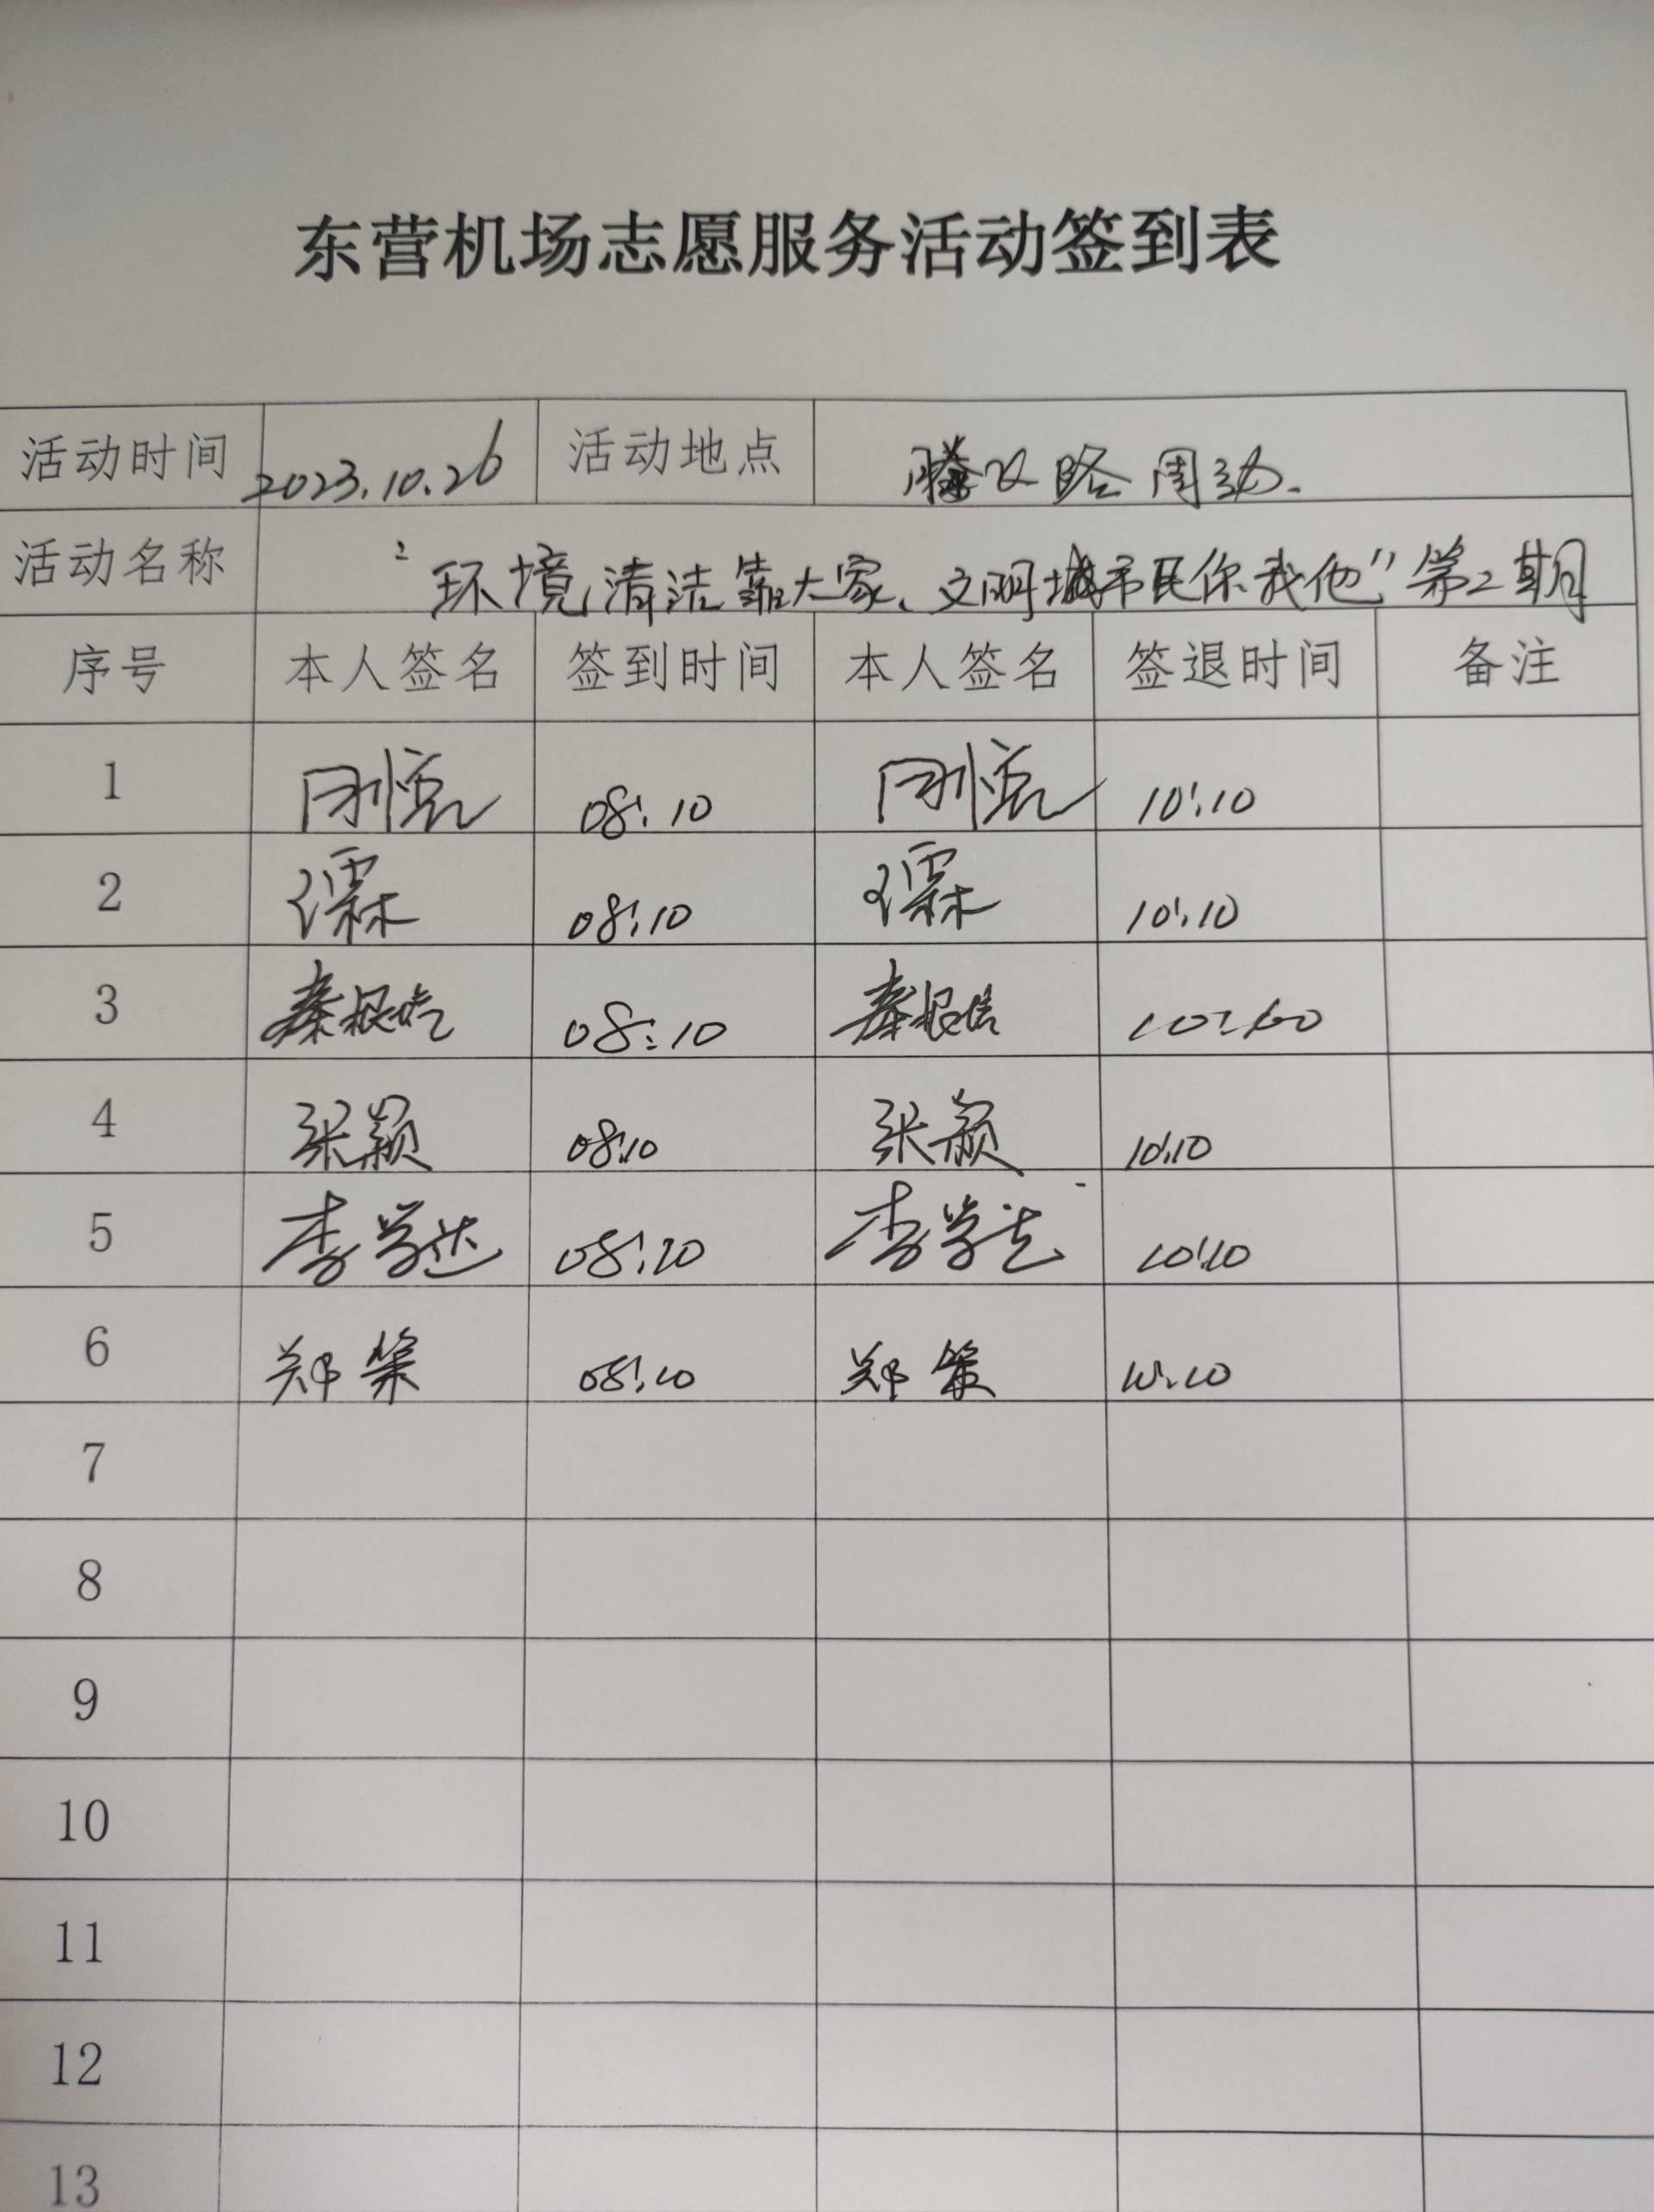 东营机场志愿服务活动签到表
活动时间 2023.10.26 活动地点 路周边.
活动名称 “环境清洁靠大家、文明城市民你我他”第2期
序号 本人签名 签到时间 本人签名 签退时间 备注
1 08:10 10:10
2 08:10 10:10
3 秦 08:10 秦 10:10
4 张颖 08:10 张颖 10:10
5 李学达 08:10 李学达 10:10
6 郑策 08:10 郑策 10:10
7
8
9
10
11
12
13